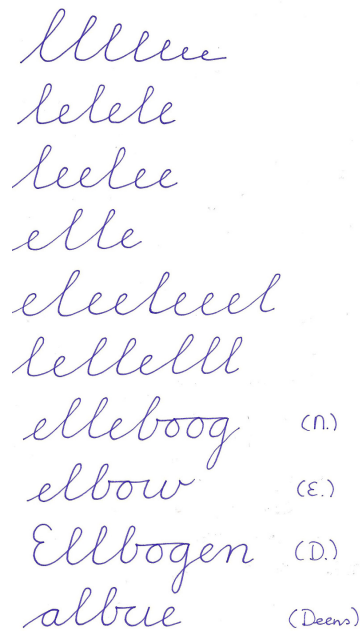 lllleee
lelele
leelee
elle
eleeleeel
lellelll
elleboog (N.)
elbow (E.)
Ellbogen (D.)
albue (Deens)